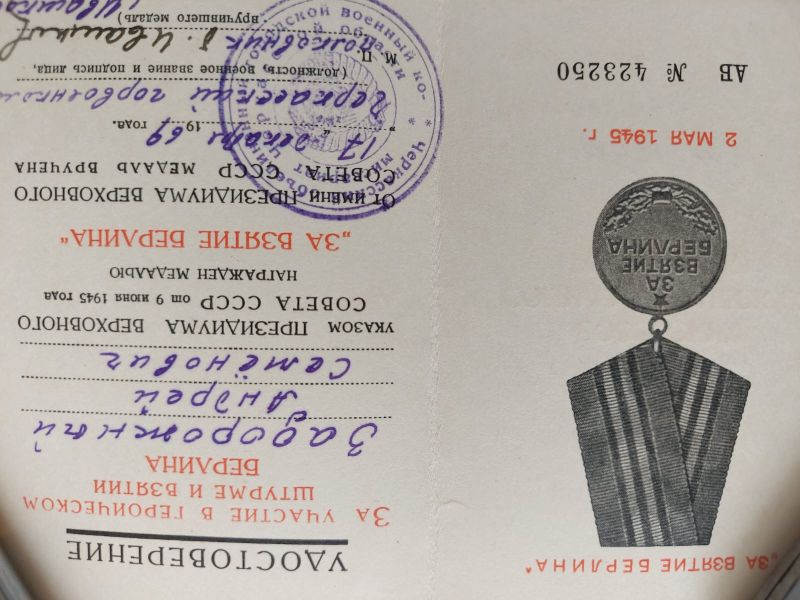 „ЗА ВЗЯТИЕ БЕРЛИНА"
ЗА
ВЗЯТИЕ
БЕРЛИНА
2 МАЯ 1945 г.
АВ № 423250
УДОСТОВЕРЕНИЕ
ЗА УЧАСТИЕ В ГЕРОИЧЕСКОМ
ШТУРМЕ И ВЗЯТИИ
БЕРЛИНА
Задорожный
Андрей
Семёнович
УКАЗОМ ПРЕЗИДИУМА ВЕРХОВНОГО
СОВЕТА СССР от 9 июня 1945 года
НАГРАЖДЕН МЕДАЛЬЮ
„ЗА ВЗЯТИЕ БЕРЛИНА"
От имени ПРЕЗИДИУМА ВЕРХОВНОГО
СОВЕТА СССР МЕДАЛЬ ВРУЧЕНА
„17" декабр 1969 года.
Черкасский горвоенком
(должность, военное звание и подпись лица,
М. П. полковник
вручившего медаль)
Ивашков